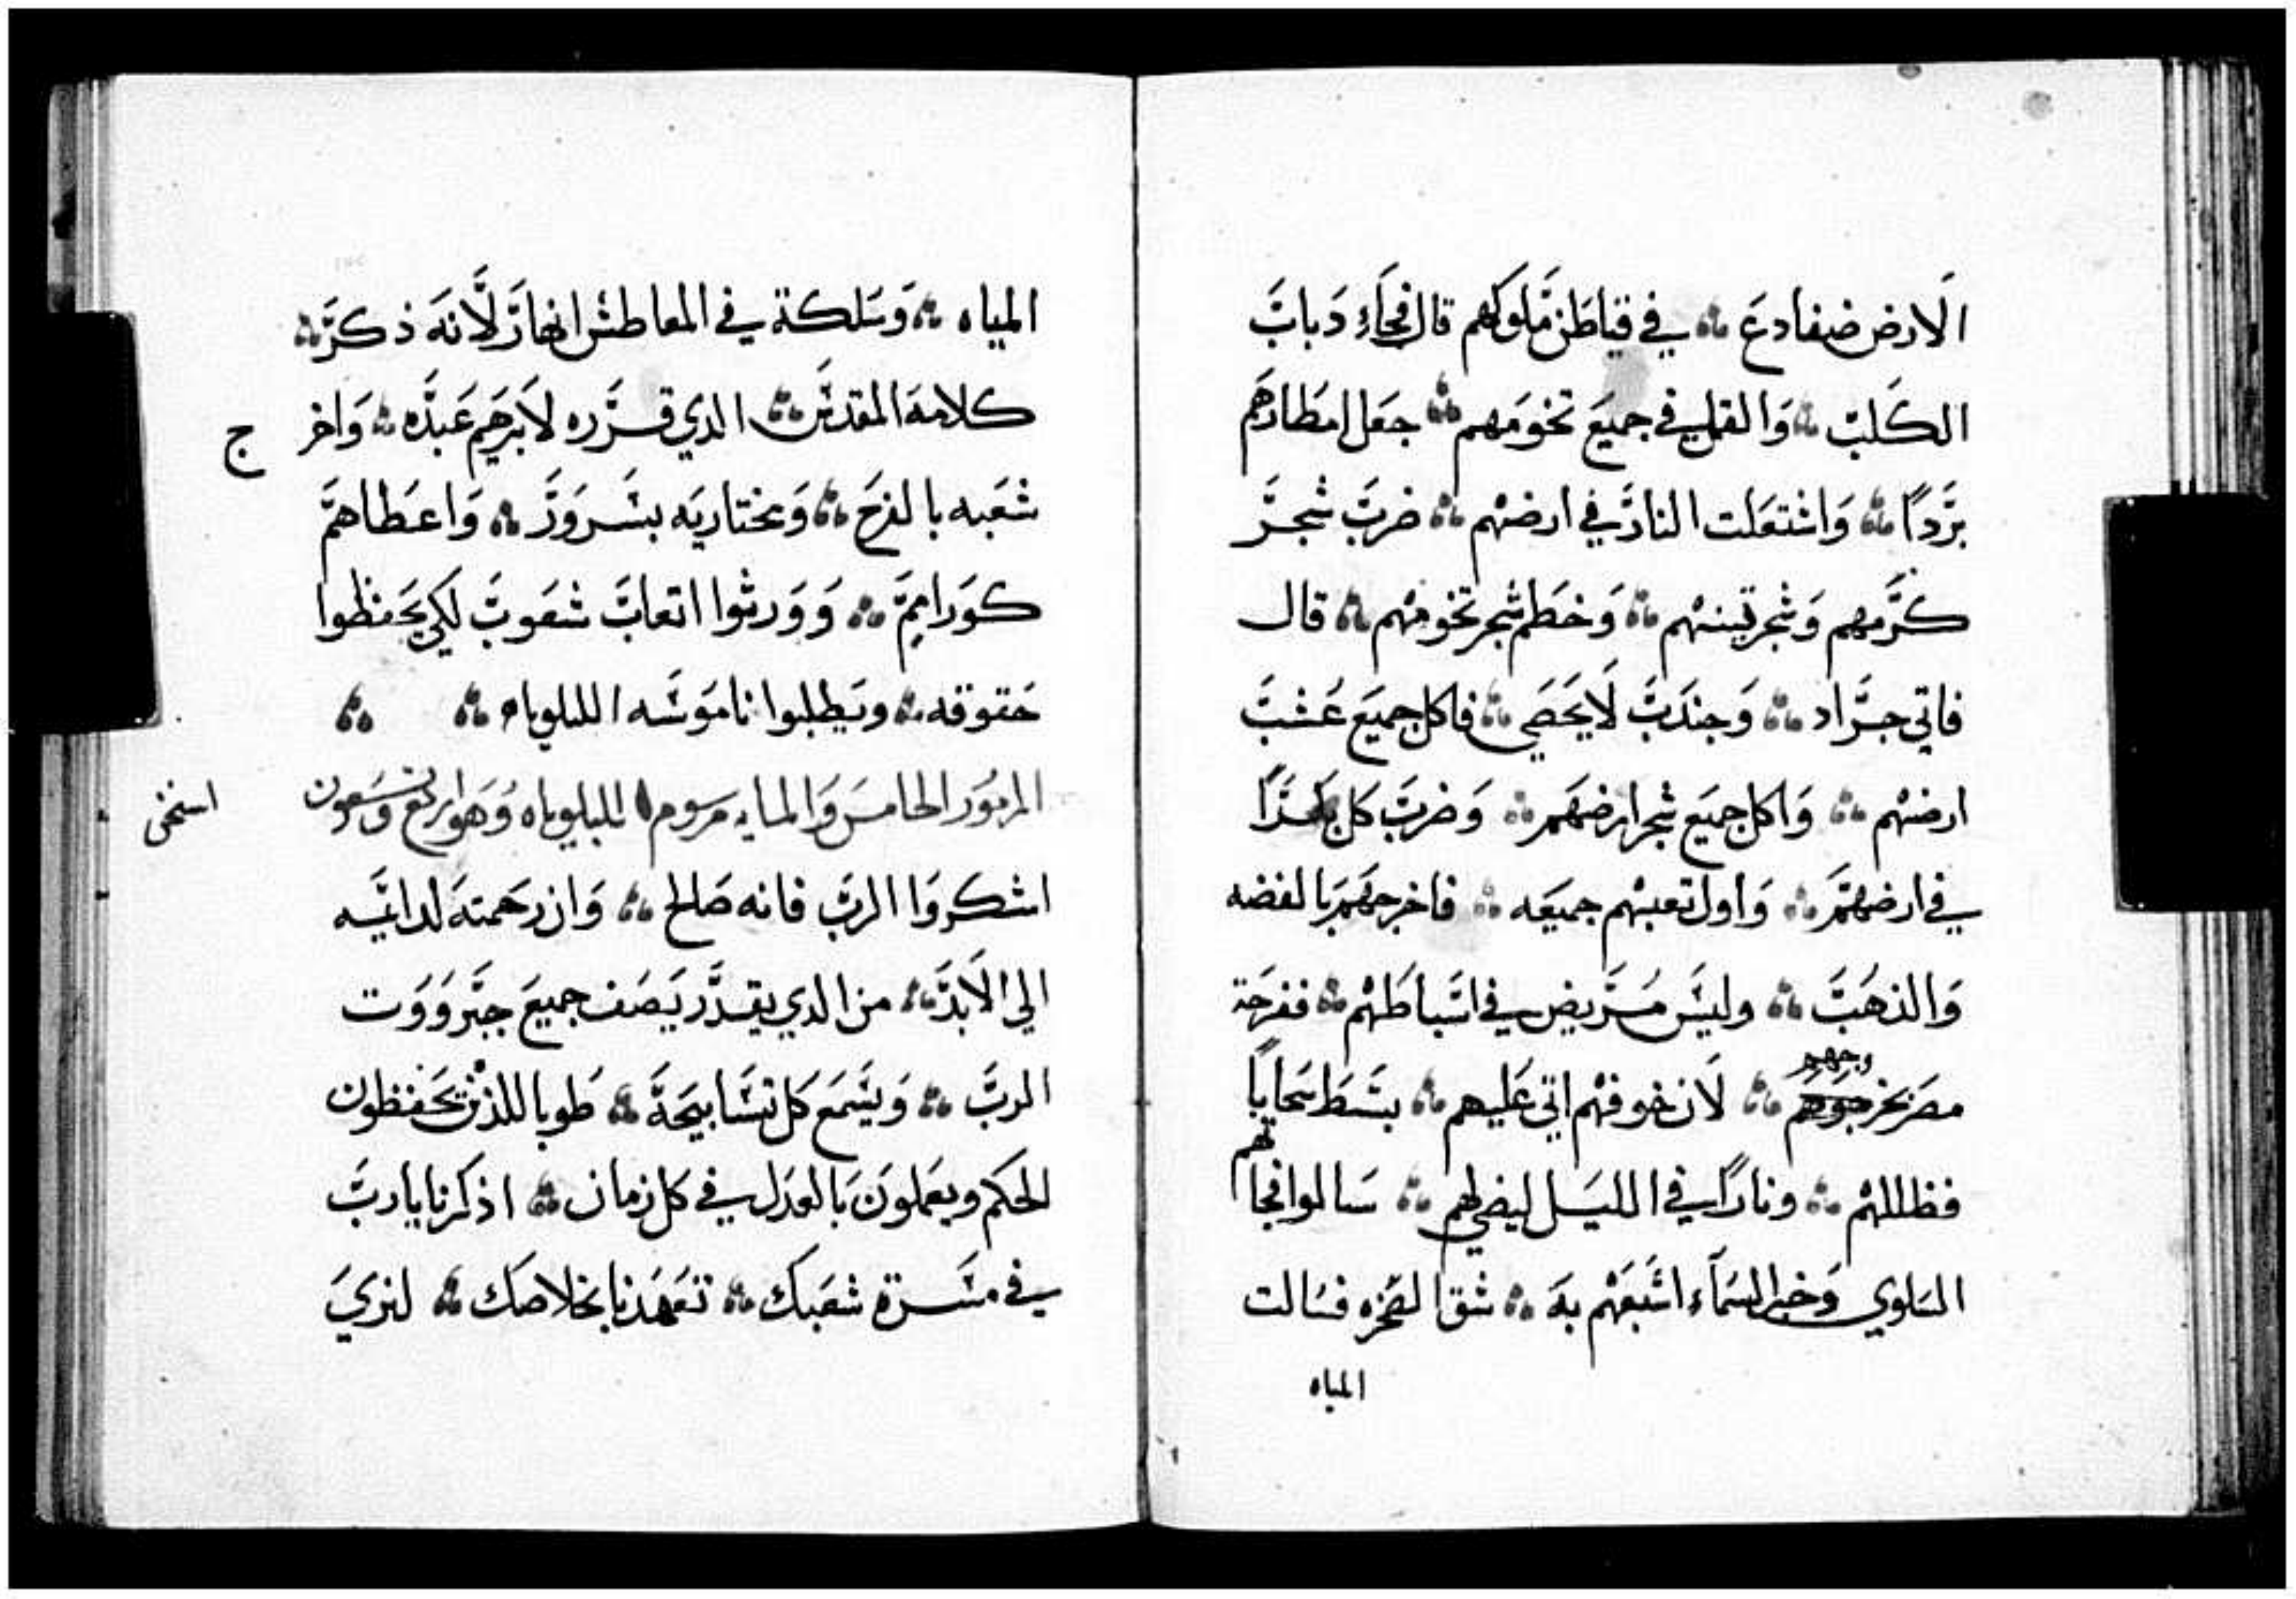 الارض ضفادع ۞ في قياطن ملوكهم قال فجاء دباب
الكلب ۞ والقمل في جميع تخومهم ۞ جعل امطارهم
بردًا ۞ واشتعلت النار في ارضهم ۞ ضرب شجر
كرمهم وشجر تينهم ۞ وخطم شجر تخومهم ۞ قال
فاتي جراد ۞ وجندب لا يحصي ۞ فاكل جميع عشب
ارضهم ۞ واكل جميع شجر ارضهم ۞ وضرب كل
في ارضهم ۞ واول تعبهم جميعه ۞ فاخرجهم بالفضه
والذهب ۞ وليس مريض في اسباطهم ۞ ففرحة
وجهم
مصر بخروجهم ۞ لان خوفهم اتي عليهم ۞ بسط سحابا
لهم
فظللهم ۞ ونارا في الليل ليضي لهم ۞ سالوا فجا
السلوي وخبز السماء اشبعهم به ۞ شق الصخره فسالت
المياه
المياه ۞ وسلكة في المعاطش انهار لانه ذكر ۞
كلامه المقدس ۞ الدي قرره لابرهيم عبده ۞ واخر
ج
شعبه بالفرح ۞ ومختاريه بسرور ۞ واعطاهم
كور امم ۞ وورثوا اتعاب شعوب لكي يحفظوا
حقوقه ۞ ويطلبوا ناموسه الليلوياه ۞ ۞
المزمور الخامس والمايه مرسوم الليلوياه وهو اربع وتسعون
اشكروا الرب فانه صالح ۞ وان رحمته لدائمه
الي الابد ۞ من الدي يقدر يصف جميع جبروت
الرب ۞ ويسمع كل تسابيحة ۞ طوبا للذين يحفظون
الحكم ويعملون بالعدل في كل زمان ۞ اذكرنا يارب
في مسرة شعبك ۞ تعهدنا بخلاصك ۞ لنري